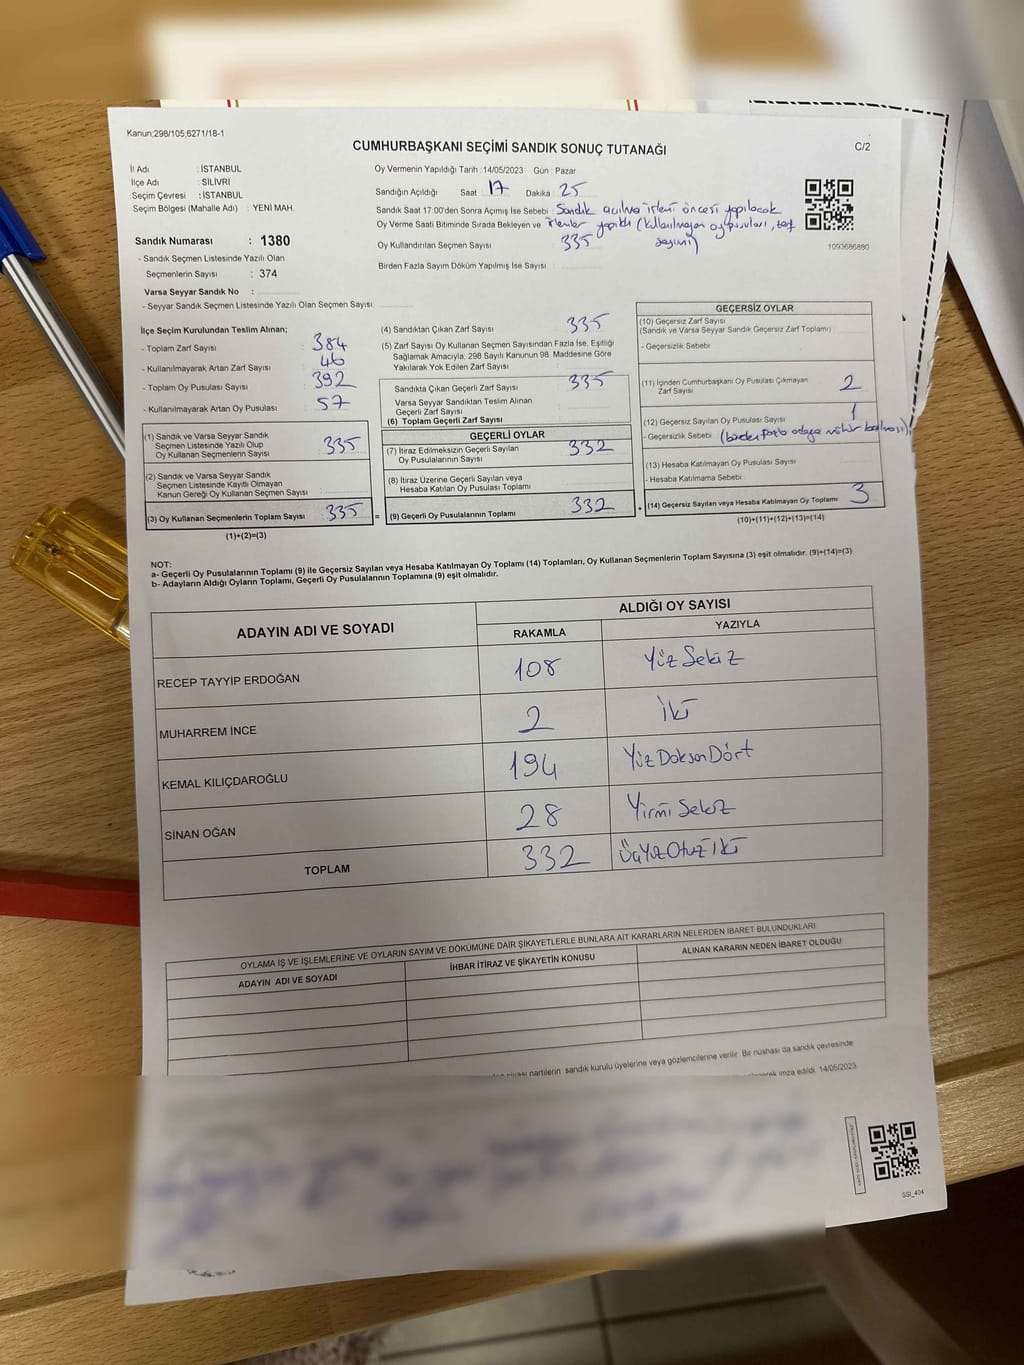 Kanun;298/105,6271/18-1
CUMHURBAŞKANI SEÇİMİ SANDIK SONUÇ TUTANAĞI
C/2
İl Adı : İSTANBUL
İlçe Adı : SİLİVRİ
Seçim Çevresi : İSTANBUL
Seçim Bölgesi (Mahalle Adı) : YENİ MAH.
Sandık Numarası : 1380
- Sandık Seçmen Listesinde Yazılı Olan
Seçmenlerin Sayısı : 374
Varsa Seyyar Sandık No :
- Seyyar Sandık Seçmen Listesinde Yazılı Olan Seçmen Sayısı:
Oy Vermenin Yapıldığı Tarih : 14/05/2023 Gün : Pazar
Sandığın Açıldığı Saat : 17 Dakika : 25
Sandık Saat 17:00'den Sonra Açılmış İse Sebebi : Sandık açılma işleri öncesi yapılacak
Oy Verme Saati Bitiminde Sırada Bekleyen ve işlemler yapıldı (kullanılmayan oy pusulası, zarf
Oy Kullandırılan Seçmen Sayısı 335 sayımı)
Birden Fazla Sayım Döküm Yapılmış İse Sayısı :
1093686880
İlçe Seçim Kurulundan Teslim Alınan;
- Toplam Zarf Sayısı : 384
- Kullanılmayarak Artan Zarf Sayısı : 46
- Toplam Oy Pusulası Sayısı : 392
- Kullanılmayarak Artan Oy Pusulası : 57
(1) Sandık ve Varsa Seyyar Sandık
Seçmen Listesinde Yazılı Olup
Oy Kullanan Seçmenlerin Sayısı : 335
(2) Sandık ve Varsa Seyyar Sandık
Seçmen Listesinde Kayıtlı Olmayan
Kanun Gereği Oy Kullanan Seçmen Sayısı :
(3) Oy Kullanan Seçmenlerin Toplam Sayısı : 335
(1)+(2)=(3)
(4) Sandıktan Çıkan Zarf Sayısı : 335
(5) Zarf Sayısı Oy Kullanan Seçmen Sayısından Fazla İse, Eşitliği
Sağlamak Amacıyla, 298 Sayılı Kanunun 98. Maddesine Göre
Yakılarak Yok Edilen Zarf Sayısı :
Sandıkta Çıkan Geçerli Zarf Sayısı : 335
Varsa Seyyar Sandıktan Teslim Alınan
Geçerli Zarf Sayısı :
(6) Toplam Geçerli Zarf Sayısı :
GEÇERLİ OYLAR
(7) İtiraz Edilmeksizin Geçerli Sayılan
Oy Pusulalarının Sayısı : 332
(8) İtiraz Üzerine Geçerli Sayılan veya
Hesaba Katılan Oy Pusulası Toplamı :
= (9) Geçerli Oy Pusulalarının Toplamı : 332
GEÇERSİZ OYLAR
(10) Geçersiz Zarf Sayısı
(Sandık ve Varsa Seyyar Sandık Geçersiz Zarf Toplamı) :
- Geçersizlik Sebebi :
(11) İçinden Cumhurbaşkanı Oy Pusulası Çıkmayan
Zarf Sayısı : 2
(12) Geçersiz Sayılan Oy Pusulası Sayısı : 1
- Geçersizlik Sebebi : (birden fazla adaya mühür basılması)
(13) Hesaba Katılmayan Oy Pusulası Sayısı :
- Hesaba Katılmama Sebebi :
+ (14) Geçersiz Sayılan veya Hesaba Katılmayan Oy Toplamı : 3
(10)+(11)+(12)+(13)=(14)
NOT:
a- Geçerli Oy Pusulalarının Toplamı (9) ile Geçersiz Sayılan veya Hesaba Katılmayan Oy Toplamı (14) Toplamları, Oy Kullanan Seçmenlerin Toplam Sayısına (3) eşit olmalıdır. (9)+(14)=(3)
b- Adayların Aldığı Oyların Toplamı, Geçerli Oy Pusulalarının Toplamına (9) eşit olmalıdır.
ADAYIN ADI VE SOYADI
ALDIĞI OY SAYISI
RAKAMLA YAZIYLA
RECEP TAYYİP ERDOĞAN 108 Yüz Sekiz
MUHARREM İNCE 2 iki
KEMAL KILIÇDAROĞLU 194 YüzDoksanDört
SİNAN OĞAN 28 Yirmi Sekiz
TOPLAM 332 ÜçYüzOtuzİki
OYLAMA İŞ VE İŞLEMLERİNE VE OYLARIN SAYIM VE DÖKÜMÜNE DAİR ŞİKAYETLERLE BUNLARA AİT KARARLARIN NELERDEN İBARET BULUNDUKLARI
ADAYIN ADI VE SOYADI İHBAR İTİRAZ VE ŞİKAYETİN KONUSU ALINAN KARARIN NEDEN İBARET OLDUĞU
siyasi partilerin sandık kurulu üyelerine veya gözlemcilerine verilir. Bir nüshası da sandık çevresinde
imza edildi. 14/05/2023
SSİ_404